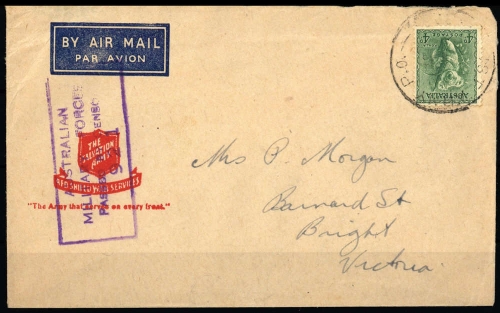 BY AIR MAIL
PAR AVION
P.O.
4D
AUSTRALIA
AUSTRALIAN
MILITARY FORCES
PASSED BY CENSOR
THE
SALVATION
ARMY
RED SHIELD WAR SERVICES
"The Army that serves on every front."
Mrs P. Morgan
Barnard St
Bright
Victoria.